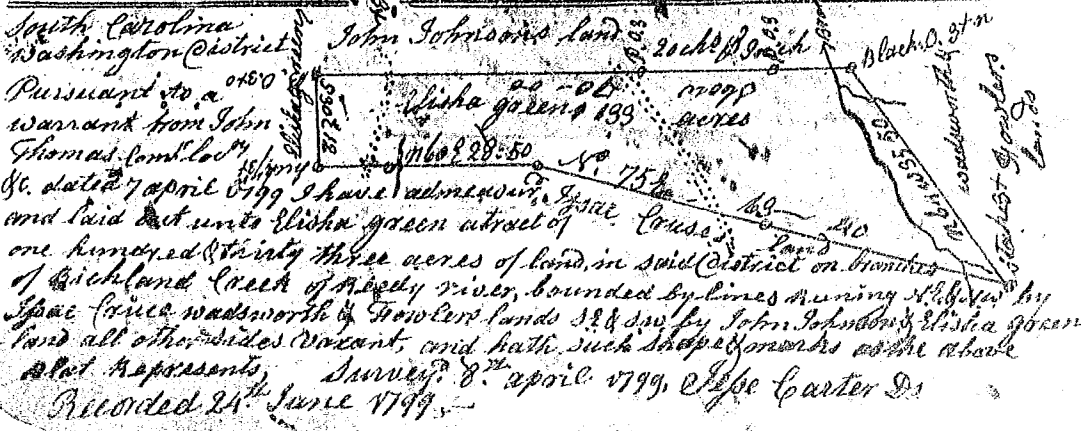 South Carolina
Washington District
Pursuant to a
warrant from John
Thomas Comr. Locn.
&c. dated 7 april 1799 I have admeasurd.
and laid out unto Elisha green atract of
one hundred & thirty three acres of land, in said District on branches
of Richland Creek of Reedy river, bounded by lines runing NE & NW by
Isaac Cruce wadsworth & Fowlers lands SE & SW by John Johnson & Elisha green
land all other sides vacant, and hath such shape & marks as the above
plat Represents, Survey.d 8.th april 1799. Jesse Carter D.S
Recorded 24th June 1799,
John Johnsons land
20 chs. p. Inch
P.O.3
P.O.3
Black.O. 3+n
Elisha greens 133
acres
N60E 28-50
N. 75E
63-40
Isaac Cruses
land
N64W 35 50
wadsworth &
Fowlers
lands